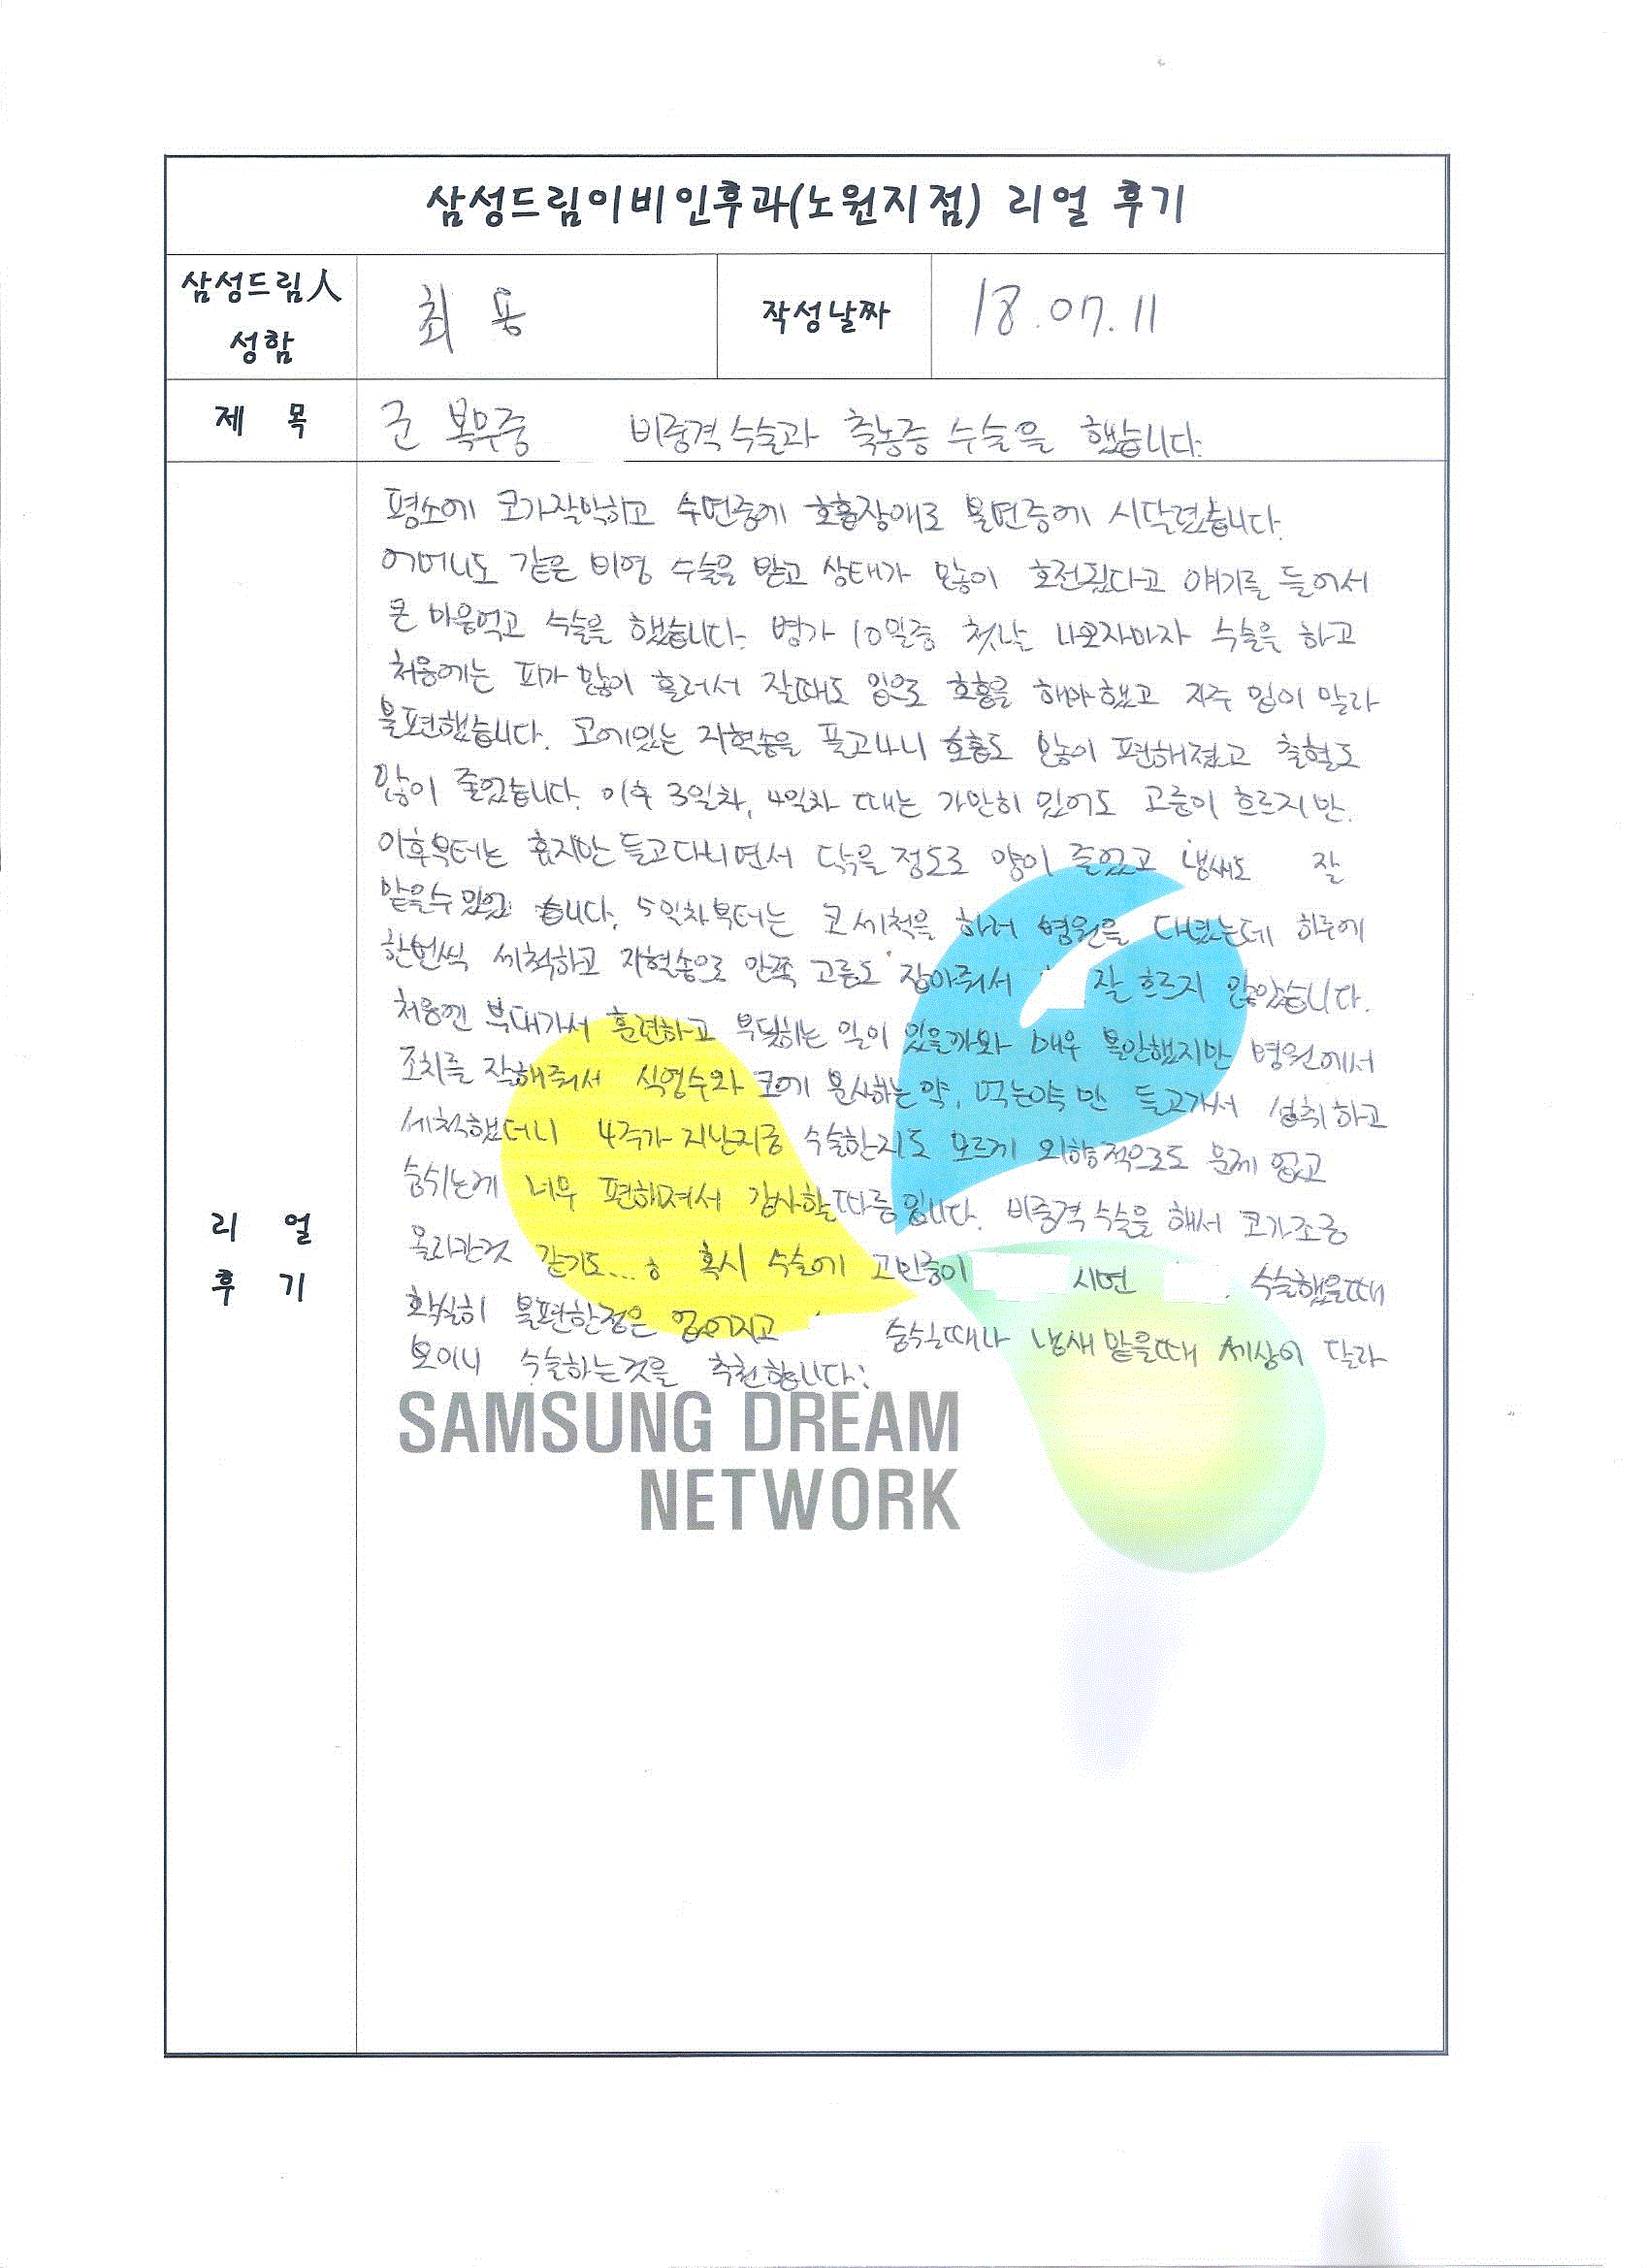 삼성드림이비인후과(노원지점) 리얼 후기
삼성드림人
성함
최 용
작성날짜
18.07.11
제 목
군 복무중 비중격 수술과 축농증 수술을 했습니다.
리 얼
후 기
평소에 코가잘막하고 수면중에 호흡장애로 불면증에 시달렸습니다.
어머니도 같은 비염 수술을 받고 상태가 많이 호전됬다고 얘기를 들어서
큰 마음먹고 수술을 했습니다. 병가 10일중 첫날 나오자마자 수술을 하고
처음에는 피가 많이 흘러서 잘때도 입으로 호흡을 해야했고 자주 입이 말라
불편했습니다. 코에있는 지혈솜을 풀고나니 호흡도 많이 편해졌고 출혈도
많이 줄었습니다. 이후 3일차, 4일차 때는 가만히 있어도 고름이 흐르지만.
이후부터는 휴지만 들고다니면서 닦을 정도로 양이 줄었고 냄새도 잘
맡을수있었습니다. 5일차부터는 코세척을 하러 병원을 다녔는데 하루에
한번씩 세척하고 지혈솜으로 안쪽 고름도 잡아줘서 잘 흐르지 않았습니다.
처음엔 부대가서 훈련하고 부딪히는 일이 있을까봐 매우 불안했지만 병원에서
조치를 잘해줘서 식염수와 코에 분사하는약, 먹는약만 들고가서 섭취하고
세척했더니 4주가 지난지금 수술한지도 모르게 외향적으로도 문제 없고
숨쉬는게 너무 편해져서 감사할따름입니다. 비중격수술을 해서 코가조금
올라간것 같기도...ㅎ 혹시 수술에 고민중이 시면 수술했을때
확실히 불편한점은 없어지고 숨쉴때나 냄새맡을때 세상이 달라
보이니 수술하는것을 추천합니다:
SAMSUNG DREAM
NETWORK